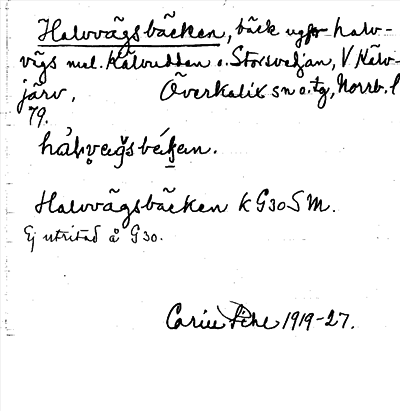 Halvvägsbäcken, bäck ugfr halv-
vägs mel. Kälvudden o. Storsveljan, V Kälv-
järv, Överkalix sn o. tg, Norrb. l
79.
Halvvägsbäcken k G30SM.
Ej utritad å G30.
Carin Pihl 1919-27.